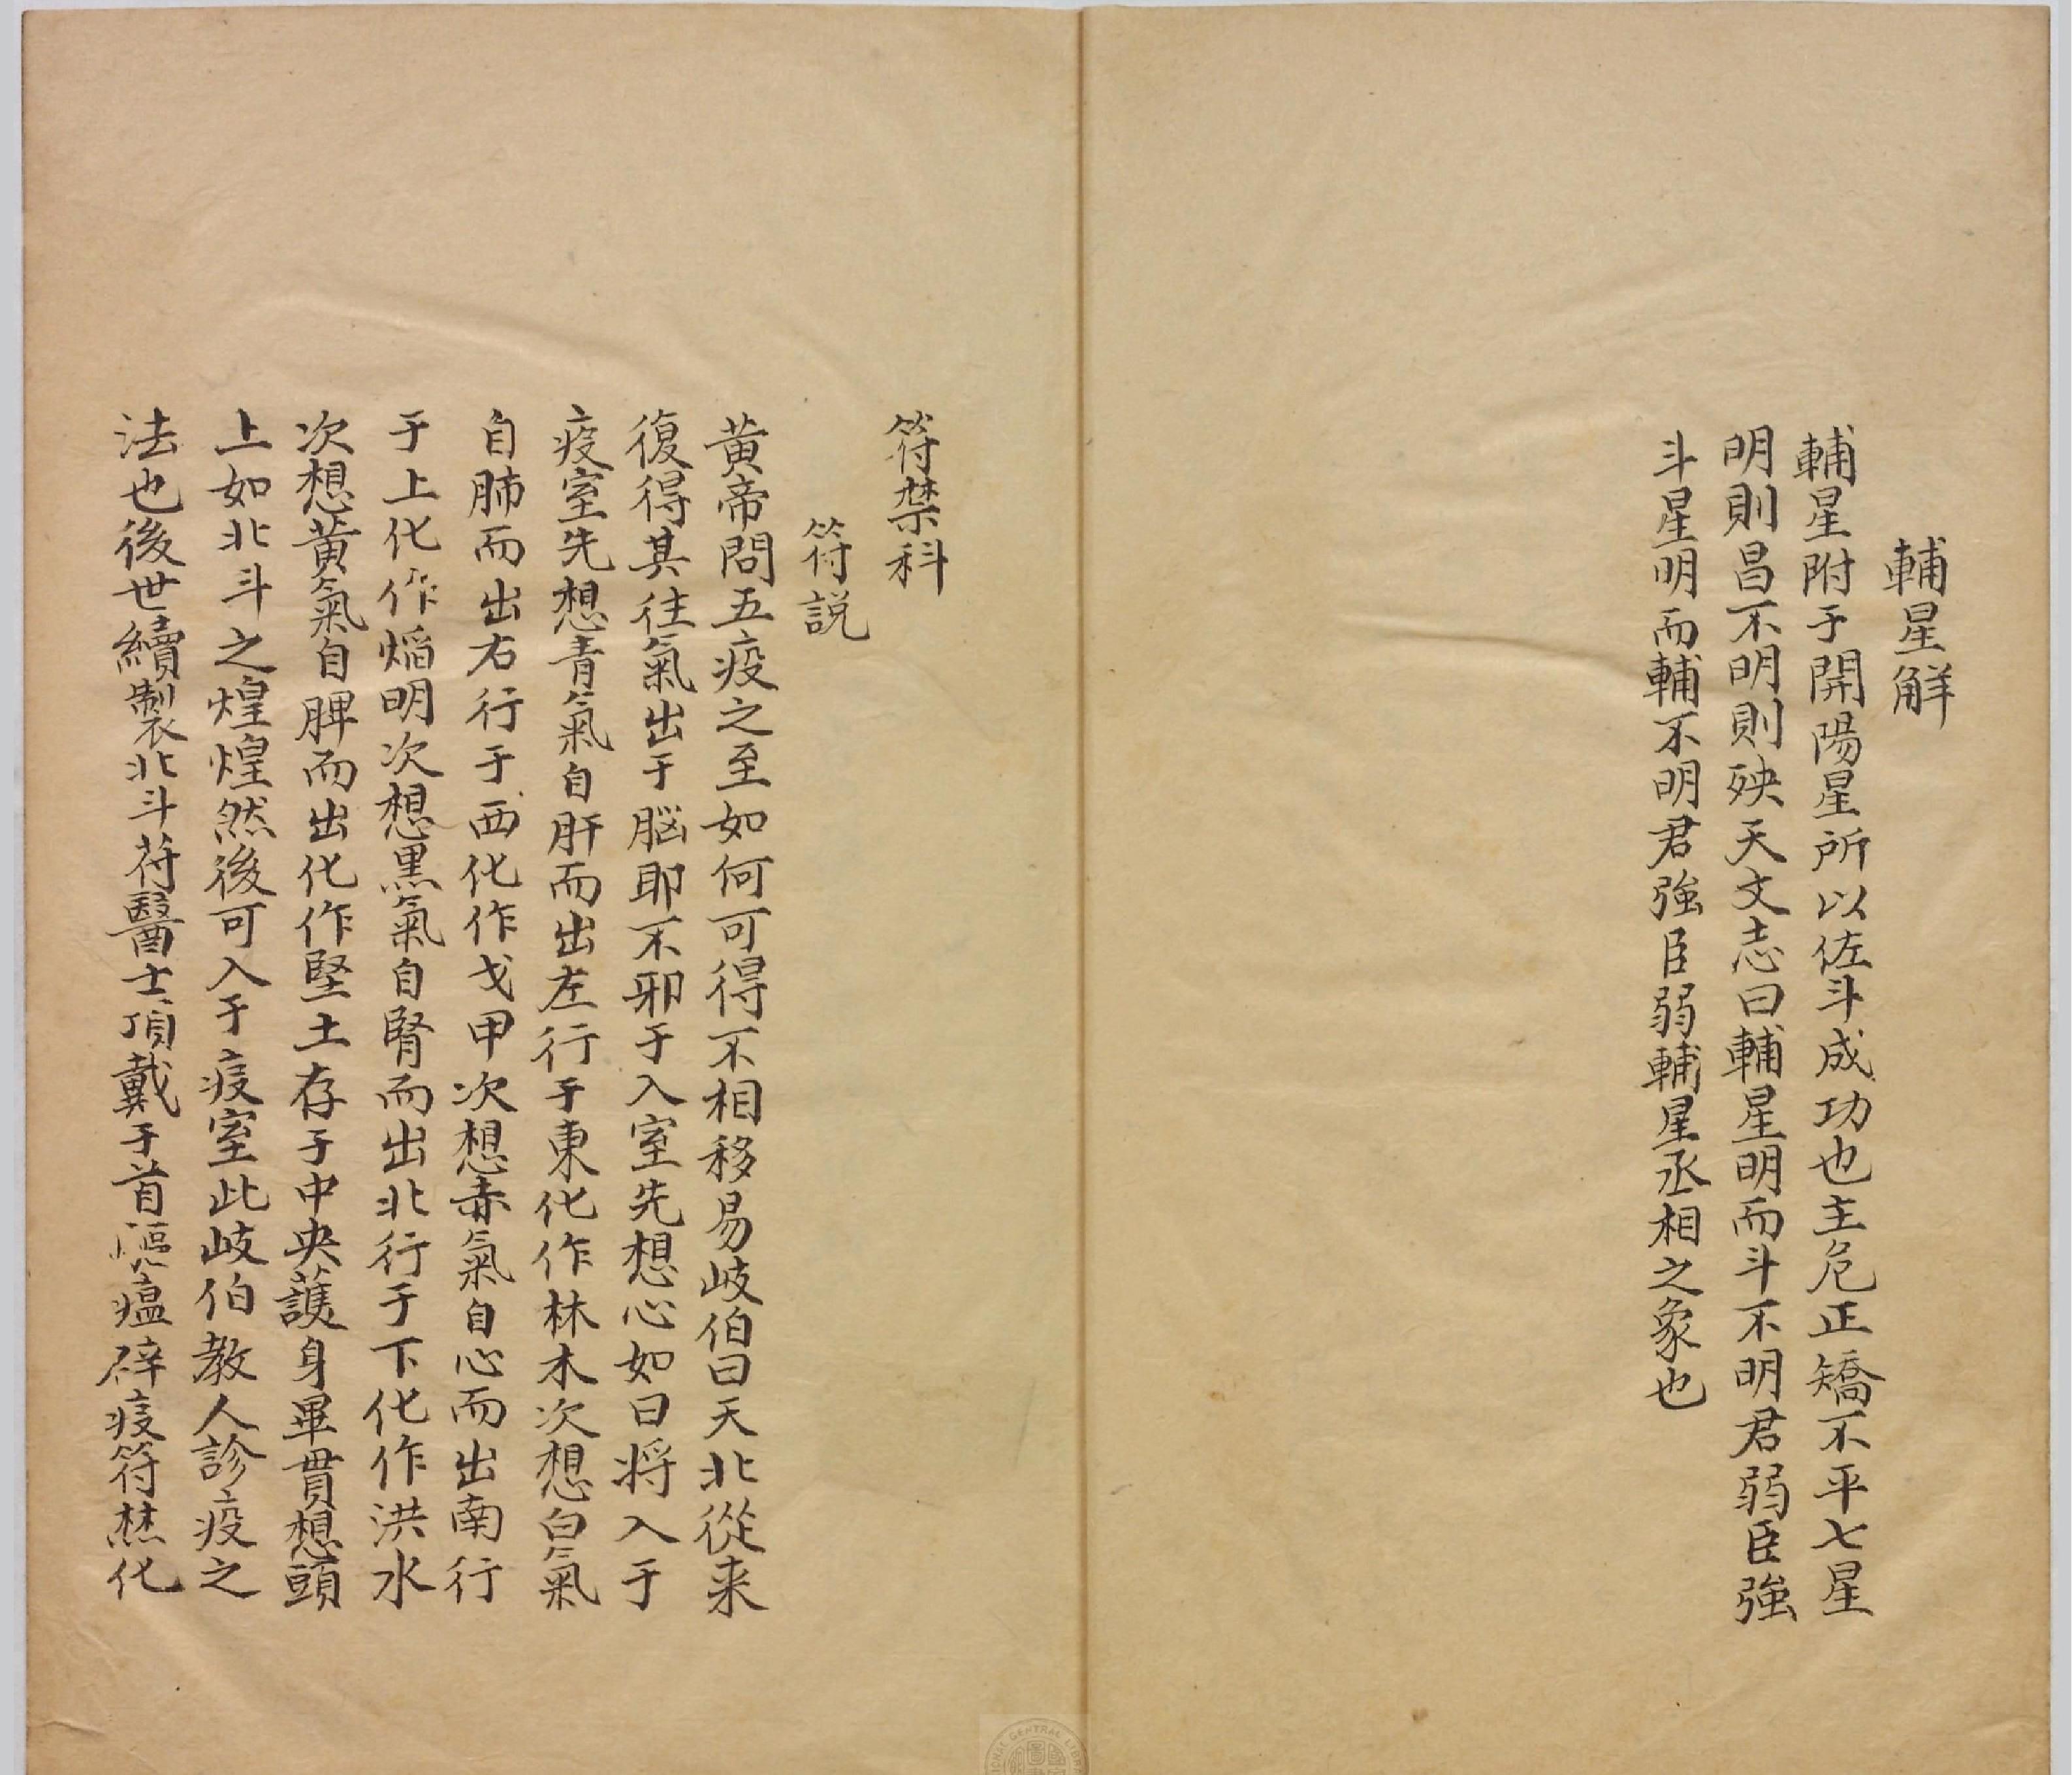 輔星觧
輔星附于開陽星所以佐斗成功也主危正矯不平七星
明則昌不明則殃天文志曰輔星明而斗不明君弱臣強
斗星明而輔不明君強臣弱輔星丞相之象也
符禁科
符説
黄帝問五疫之至如何可得不相移易岐伯曰天北從来
復得其往氣出于脳耶不邪于入室先想心如日将入于
疫室先想青氣自肝而出左行于東化作林木次想白氣
自肺而出右行于西化作戈甲次想赤氣自心而出南行
于上化作焰明次想黒氣自腎而出北行于下化作洪水
次想黄氣自脾而出化作堅土存于中央護身畢貫想頭
上如北斗之煌煌然後可入于疫室此岐伯教人診疫之
法也後世續製北斗符醫士頂戴于首瘟辟疫符化
CENTRAL